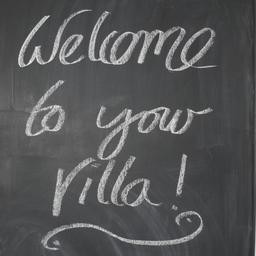 Welcome
to your
villa!